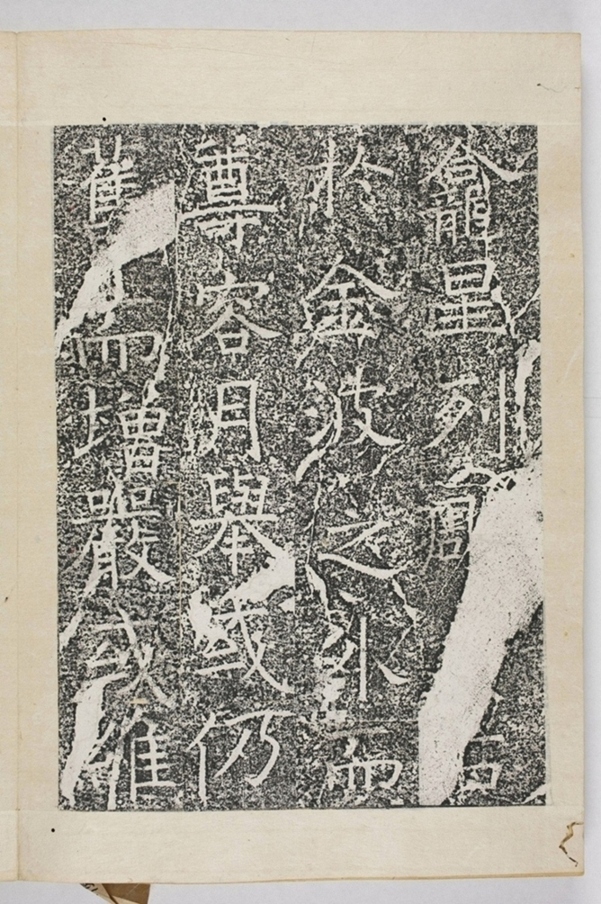 龕星列石
於金波之外而
尊容月舉或仍
舊而增嚴或維